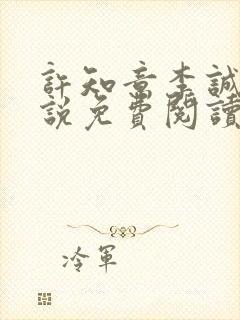 許知章李誠
說免費閱讀
冷軍